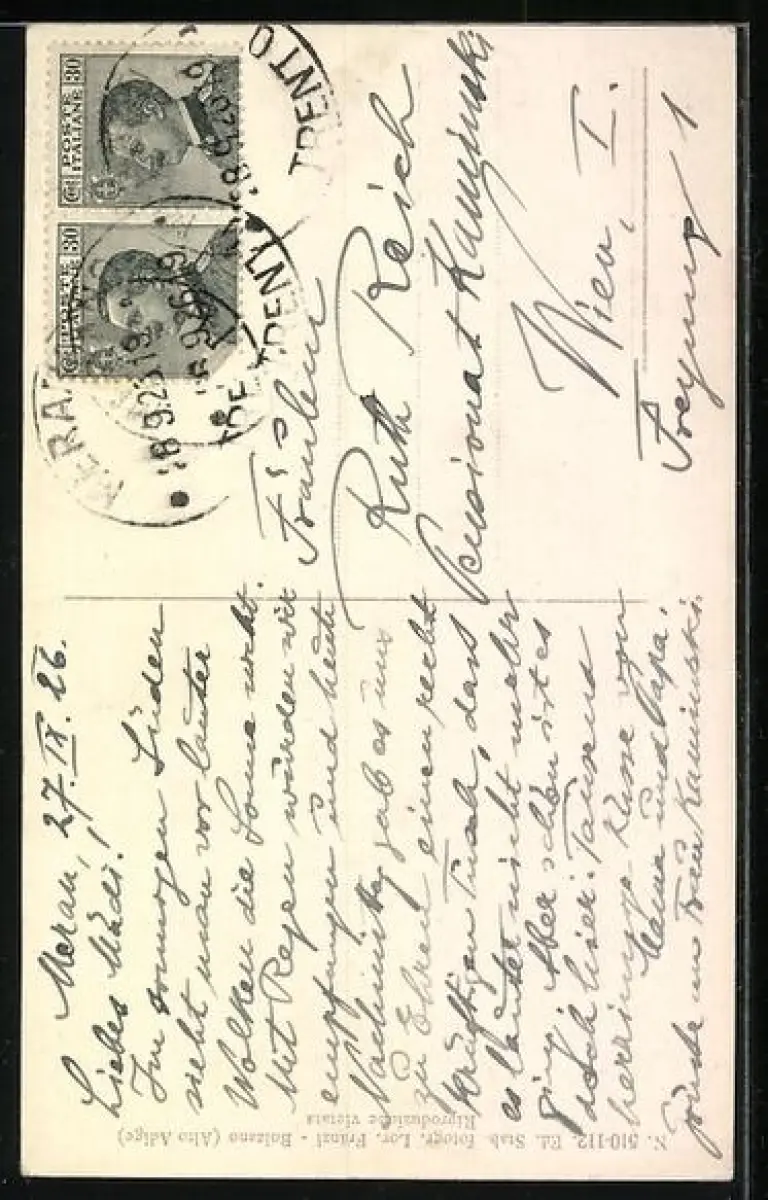 Meran, 27. IX. 26.
Liebes Mädi!
Im sonnigen Süden
sieht man vor lauter
Wolken die Sonne nicht.
Mit Regen wurden wir
empfangen und heute
Nachmittag gab es uns
zu Ehren einen recht
kräftigen Tusch, dass
es lauter nicht mehr
ging. Aber schön ist es
doch hier. Tausend
herzinnige Küsse von
Mama und Papa.
Grüsse an Frau Kaminski.
Fräulein
Ruth Reich
Pensionat Kaminski
Wien, I.
Freyung 1
POSTE ITALIANE 30
POSTE ITALIANE 30
TRENTO
N. 510-112. Ed. Stab. fotogr. Lor. Fränzl - Bolzano (Alto Adige)
Riproduzione vietata